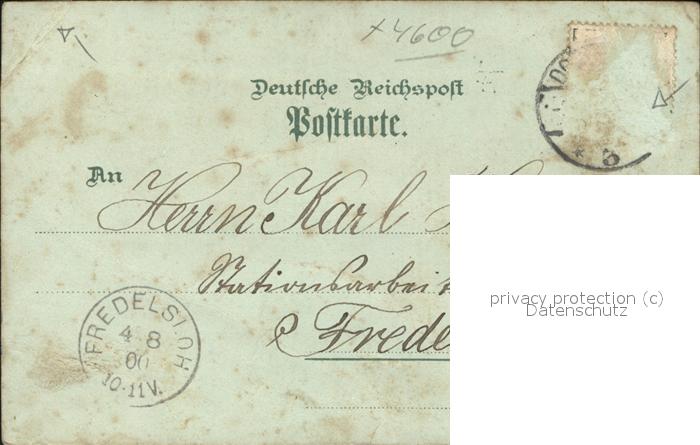 +4600
Deutsche Reichspost
Postkarte.
An
Herrn Karl
Stationsarbeit
Fredel
FREDELSLOH
4 8
00
10-11V.
* 3
privacy protection (c)
Datenschutz